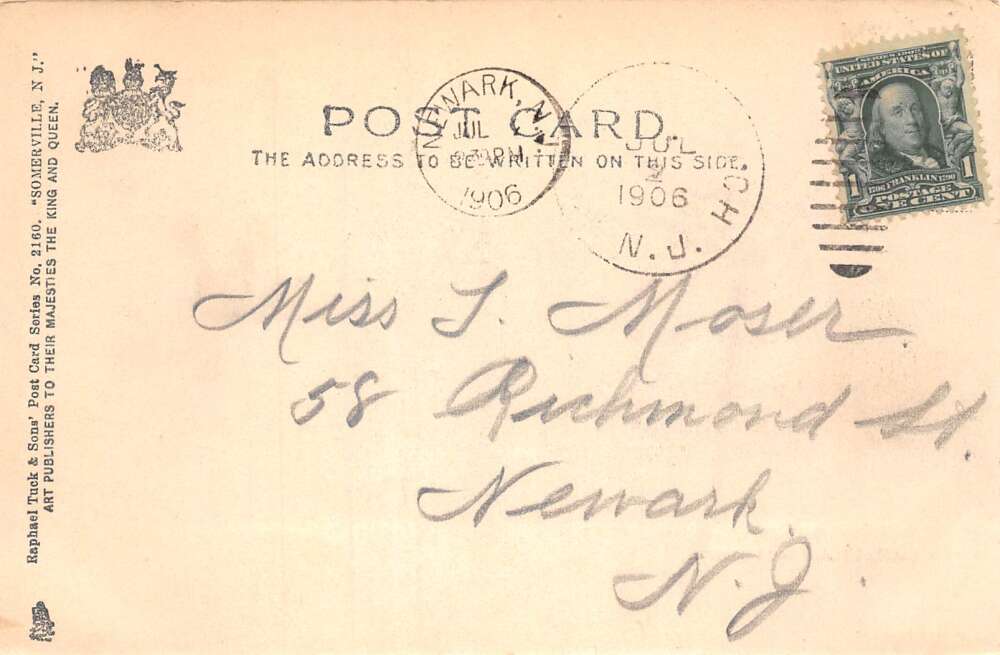 Raphael Tuck & Sons' Post Card Series No. 2160. "SOMERVILLE, N J."
ART PUBLISHERS TO THEIR MAJESTIES THE KING AND QUEEN.
POST CARD.
THE ADDRESS TO BE WRITTEN ON THIS SIDE.
NEWARK, N.J.
JUL
1906
JUL
2
1906
CH
N.J.
SERIES 1902
UNITED STATES OF
AMERICA
1 1706 FRANKLIN 1790 1
POSTAGE
ONE CENT
Miss T. Moser
58 Richmond St.
Newark,
N.J.